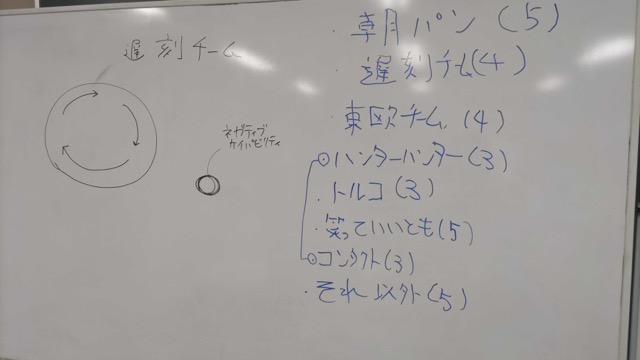 遅刻チーム
ネガティブ
ケイパビリティ
・朝月パン(5)
・遅刻チーム(4)
東欧チーム(4)
ハンターバンター(3)
・トルコ(3)
・笑っていいとも(5)
コンタクト(3)
・それ以外(5)